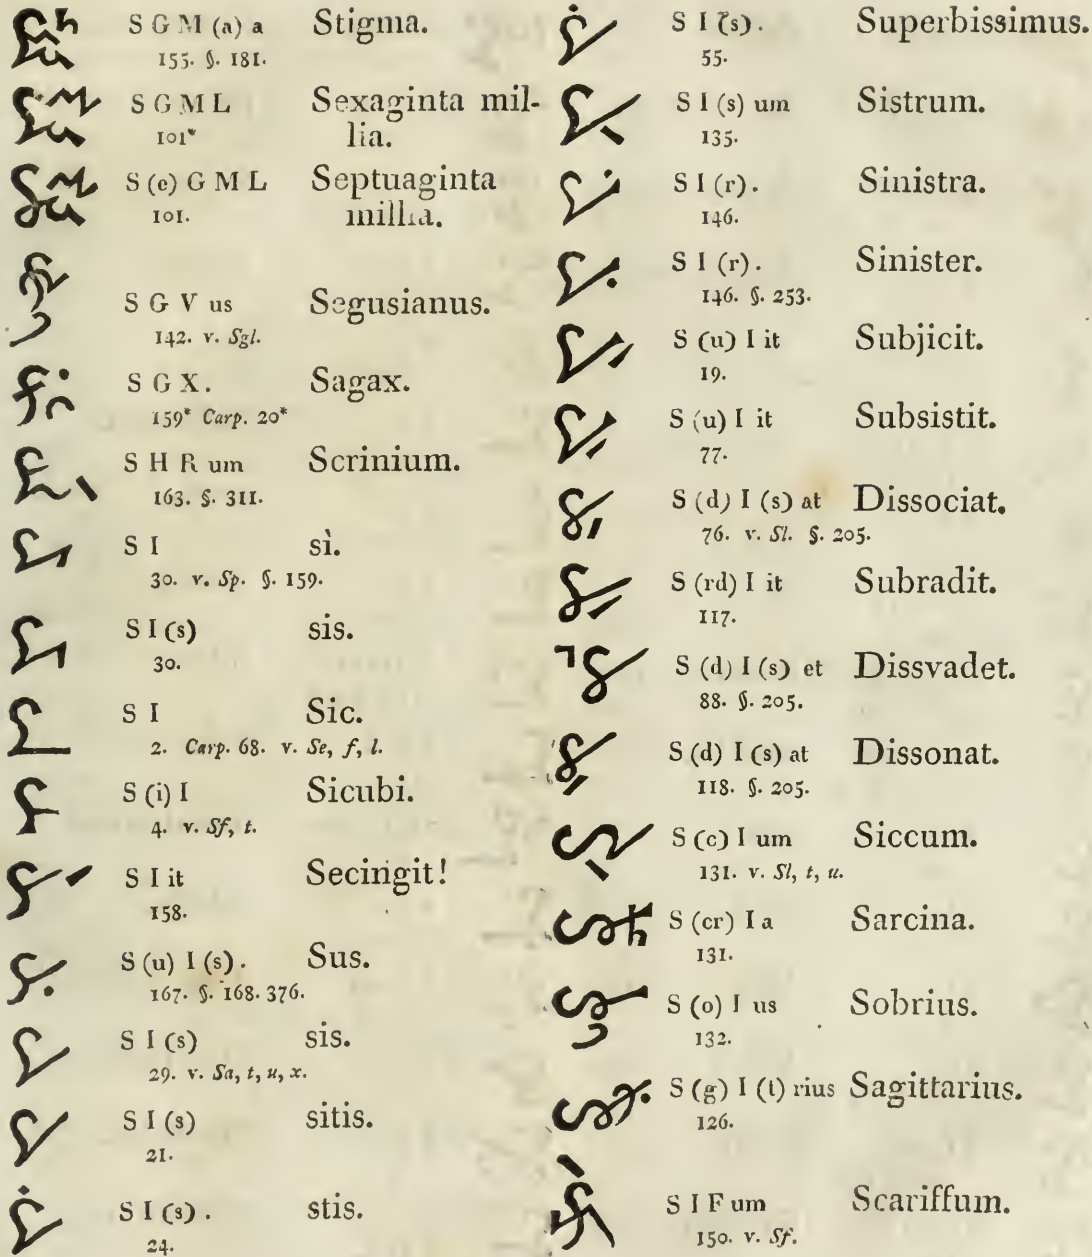 S G M (a) a Stigma.
155. §. 181.
S G M L Sexaginta mil-
101* lia.
S (e) G M L Septuaginta
101. millia.
S G V us Segusianus.
142. v. Sgl.
S G X. Sagax.
159* Carp. 20*
S H R um Scrinium.
163. §. 311.
S I sì.
30. v. Sp. §. 159.
S I (s) sis.
30.
S I Sic.
2. Carp. 68. v. Se, f, l.
S (i) I Sicubi.
4. v. Sf, t.
S I it Secingit!
158.
S (u) I (s). Sus.
167. §. 168. 376.
S I (s) sis.
29. v. Sa, t, u, x.
S I (s) sitis.
21.
S I (s). stis.
24.
S I (s). Superbissimus.
55.
S I (s) um Sistrum.
135.
S I (r). Sinistra.
146.
S I (r). Sinister.
146. §. 253.
S (u) I it Subjicit.
19.
S (u) I it Subsistit.
77.
S (d) I (s) at Dissociat.
76. v. Sl. §. 205.
S (rd) I it Subradit.
117.
S (d) I (s) et Dissvadet.
88. §. 205.
S (d) I (s) at Dissonat.
118. §. 205.
S (c) I um Siccum.
131. v. Sl, t, u.
S (cr) I a Sarcina.
131.
S (o) I us Sobrius.
132.
S (g) I (t) rius Sagittarius.
126.
S I F um Scariffum.
150. v. Sf.